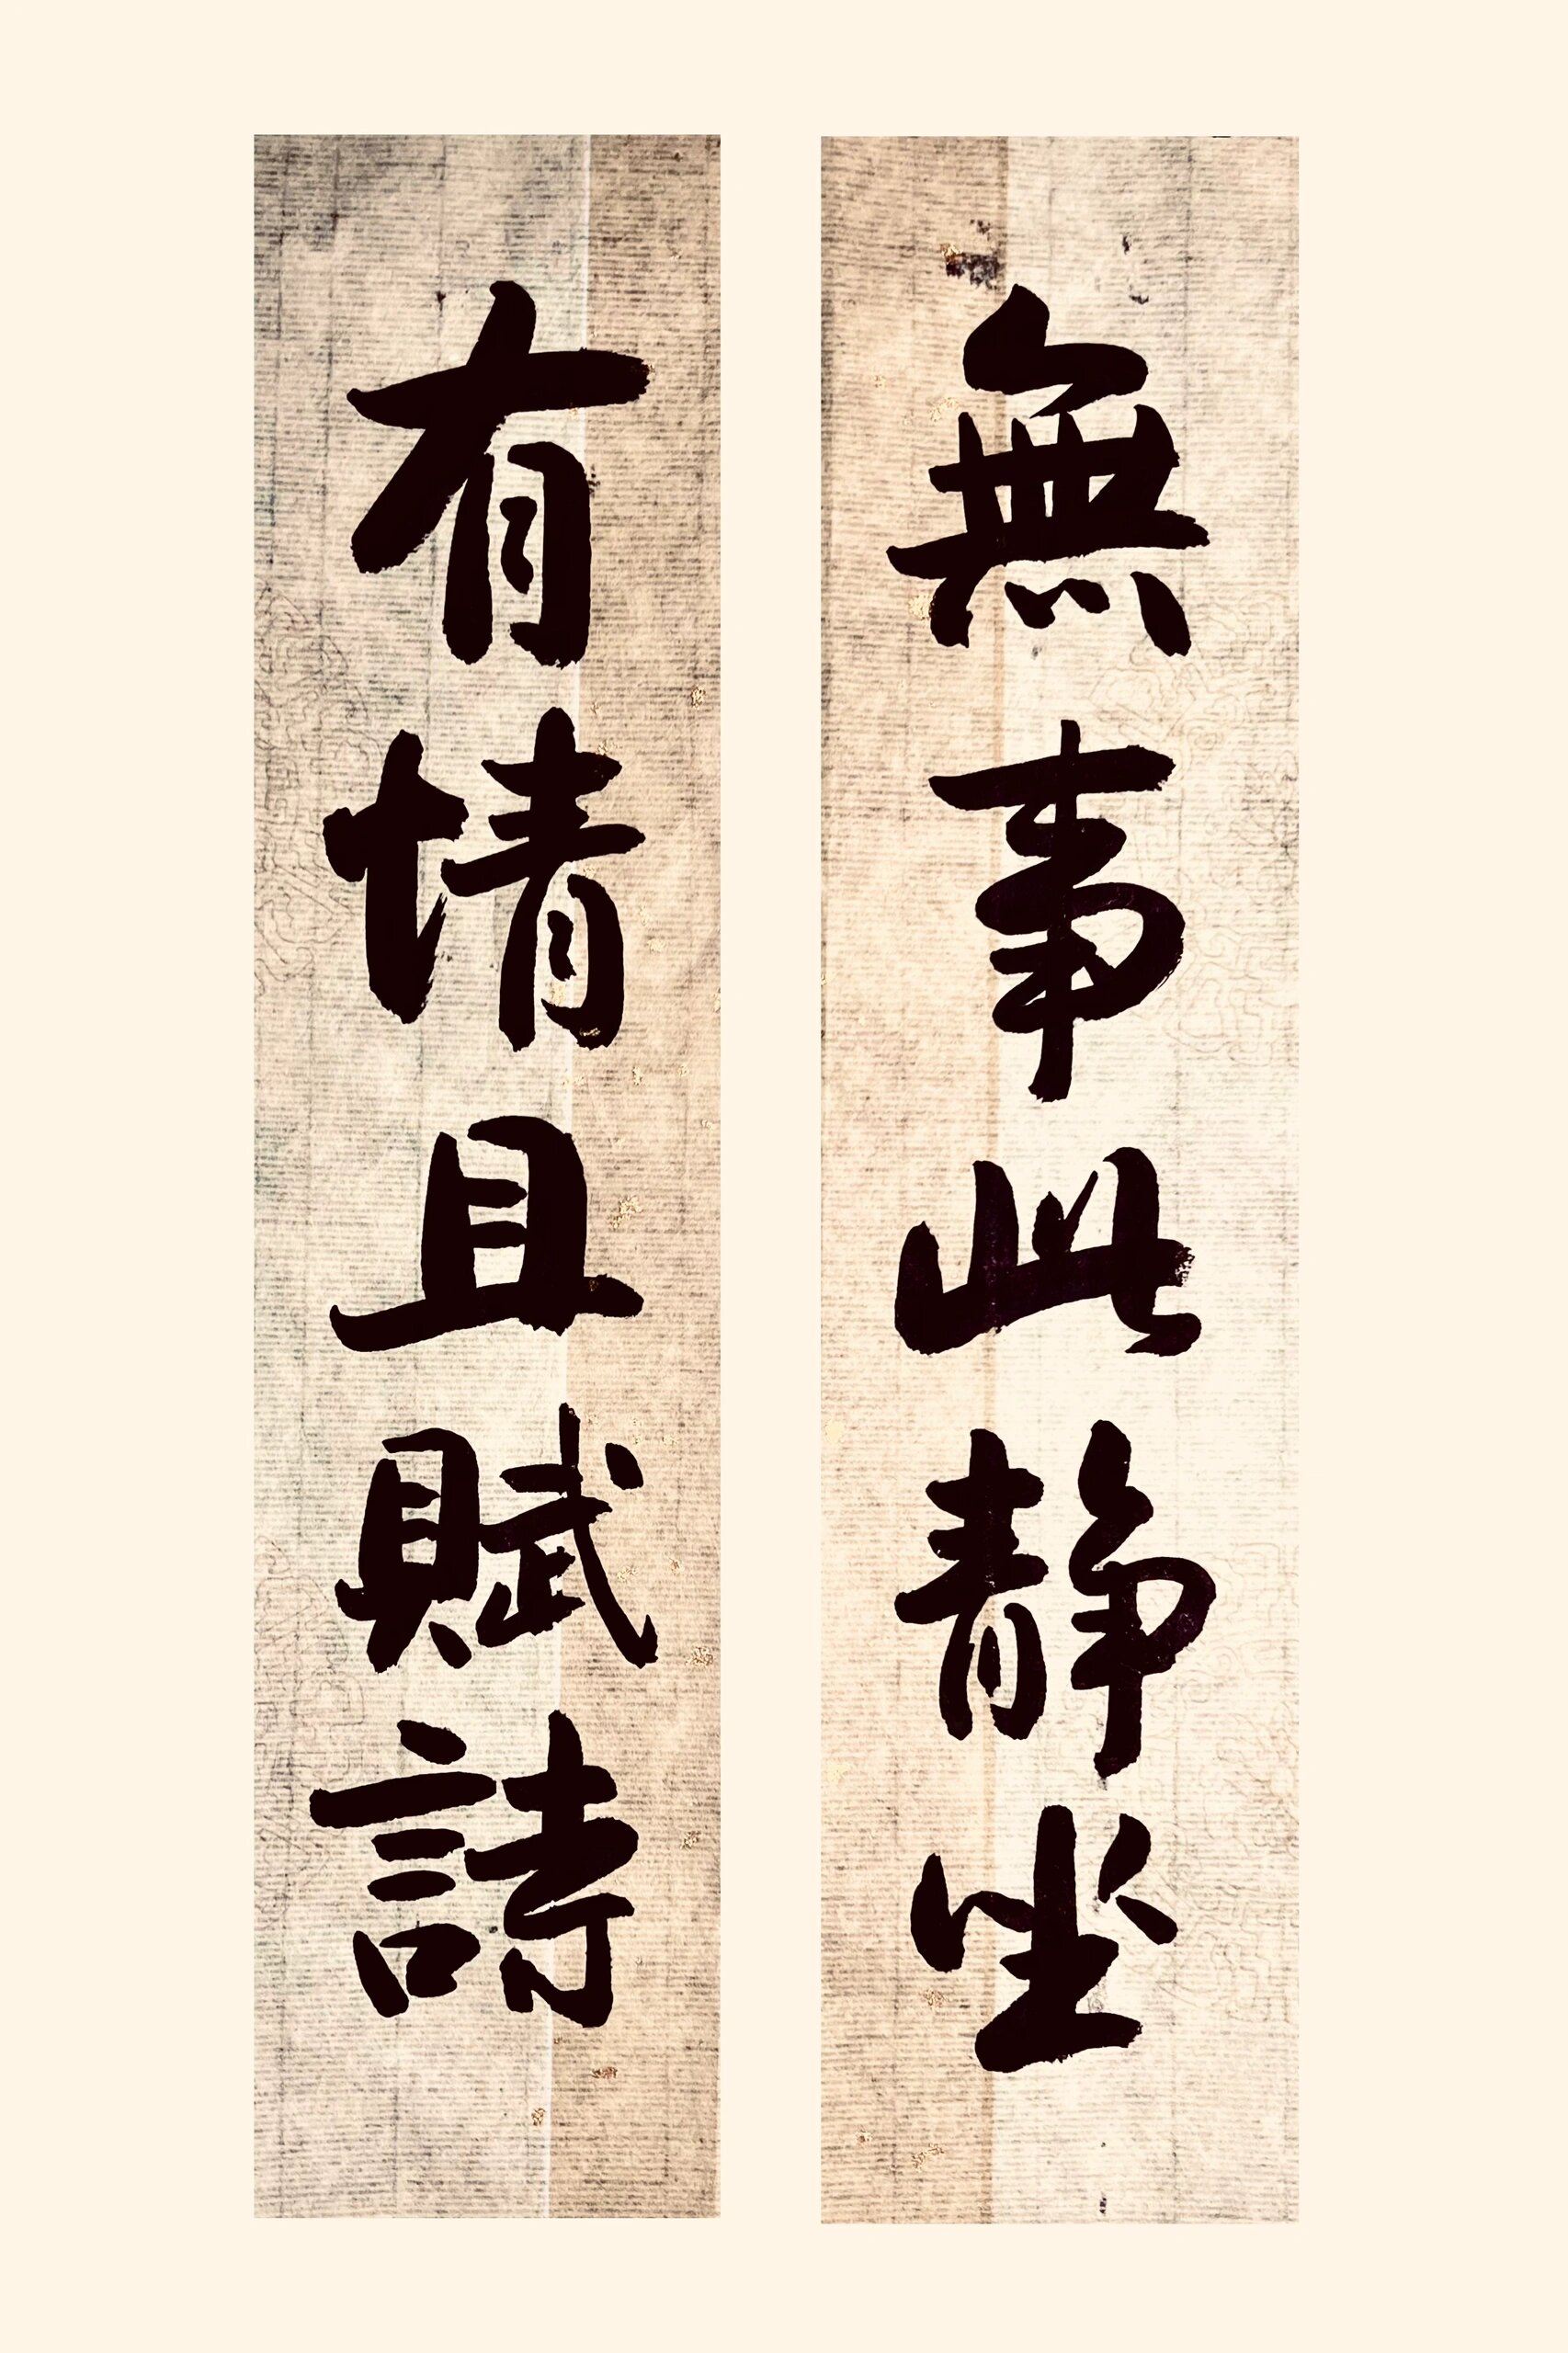 無事此靜坐
有情且賦詩